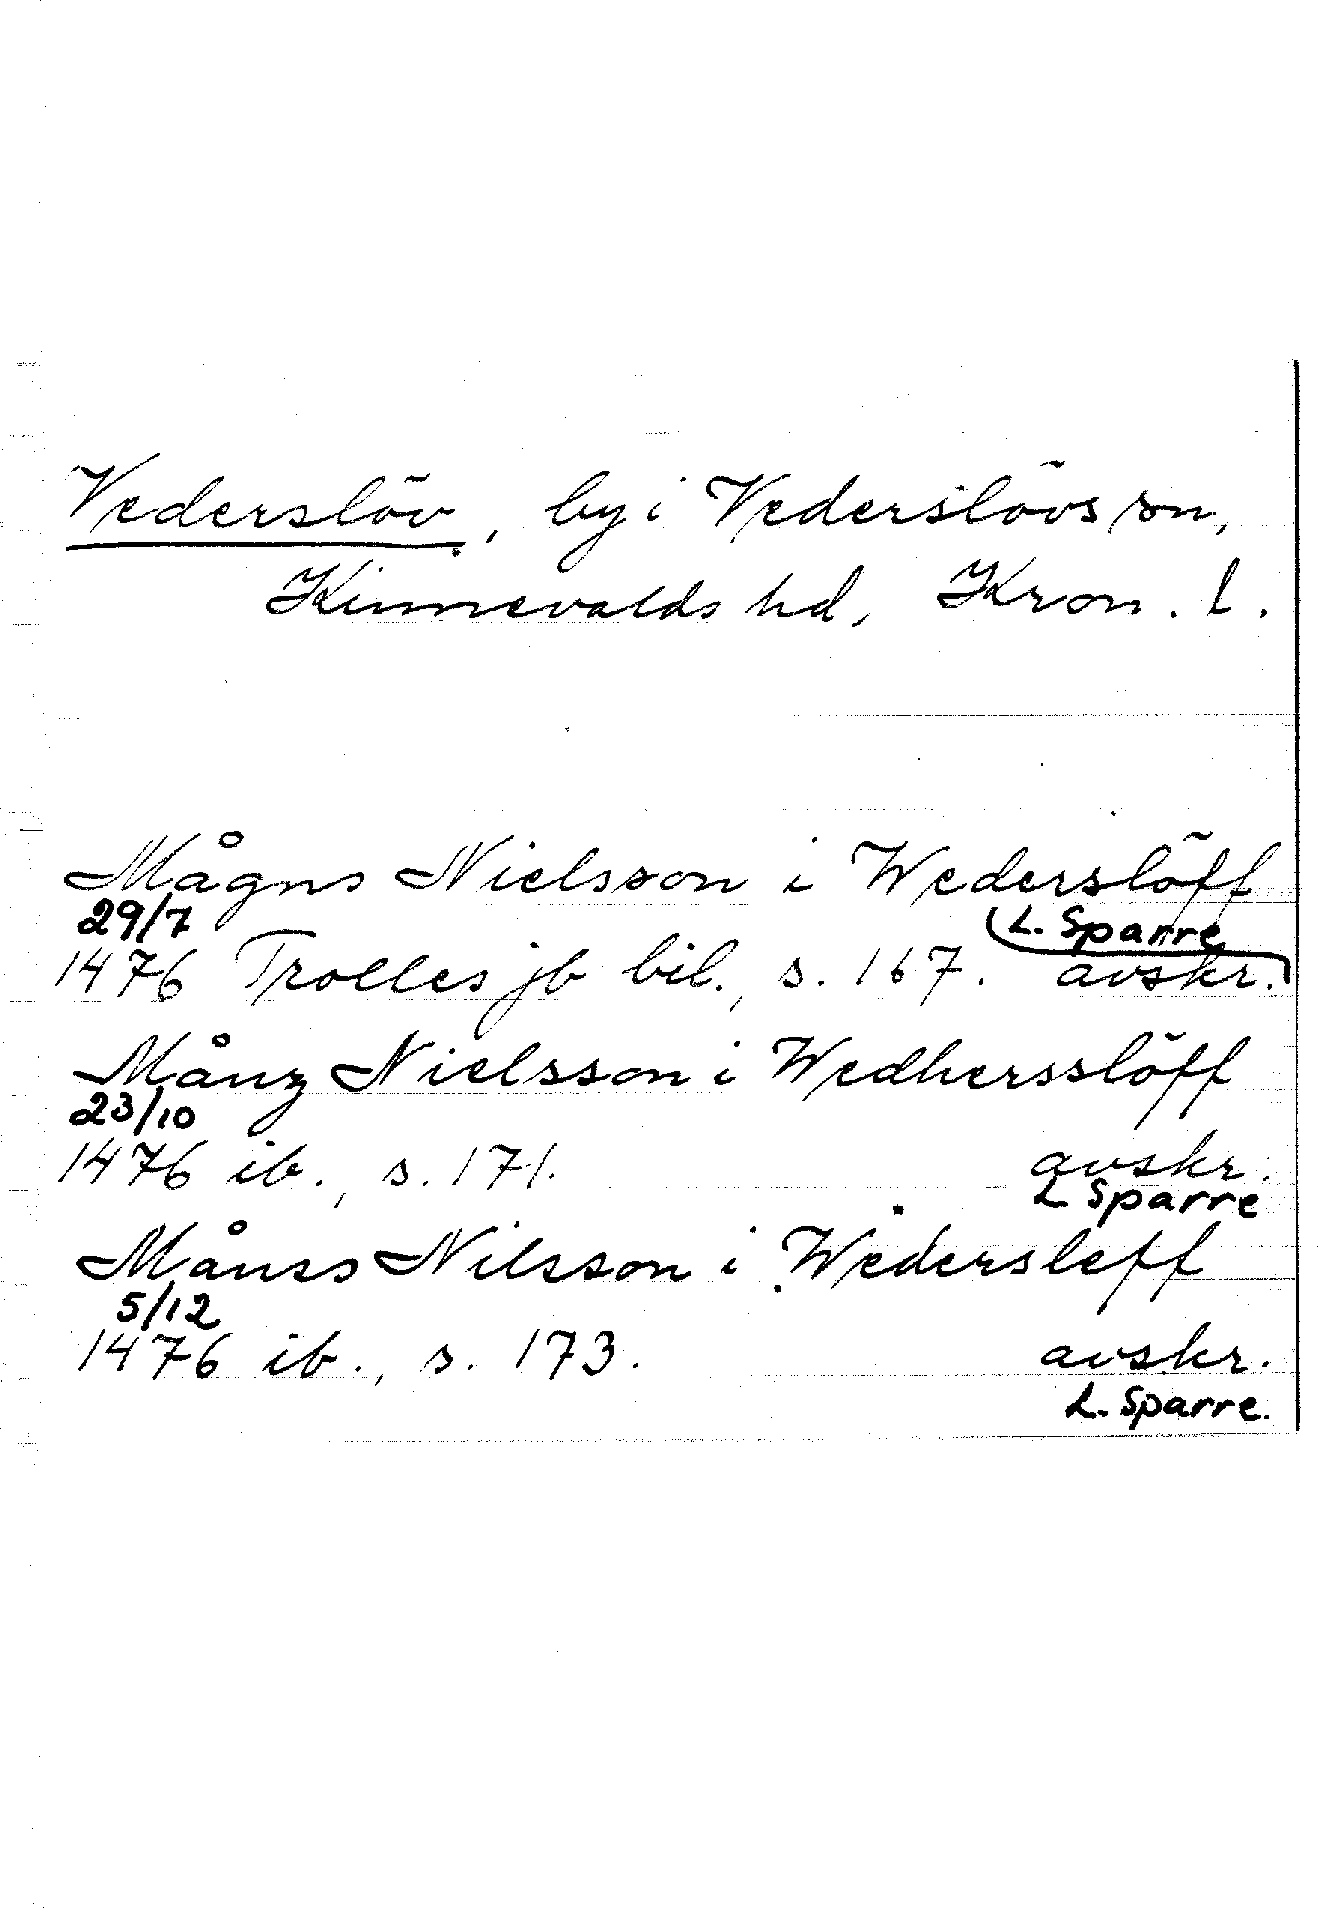 Vederslöv, by i Vederslövs sn,
Kinnevalds hd, Kron. l.
Mågns Nielsson i Wederslöff
29/7
L. Sparre
1476 Trolles jb bil., s. 167. avskr.
Månz Nielsson i Wedhersslöff
23/10
1476 ib., s. 171. avskr.
L Sparre
Månss Nilsson i Wedersleff
5/12
1476 ib., s. 173. avskr.
L. Sparre.